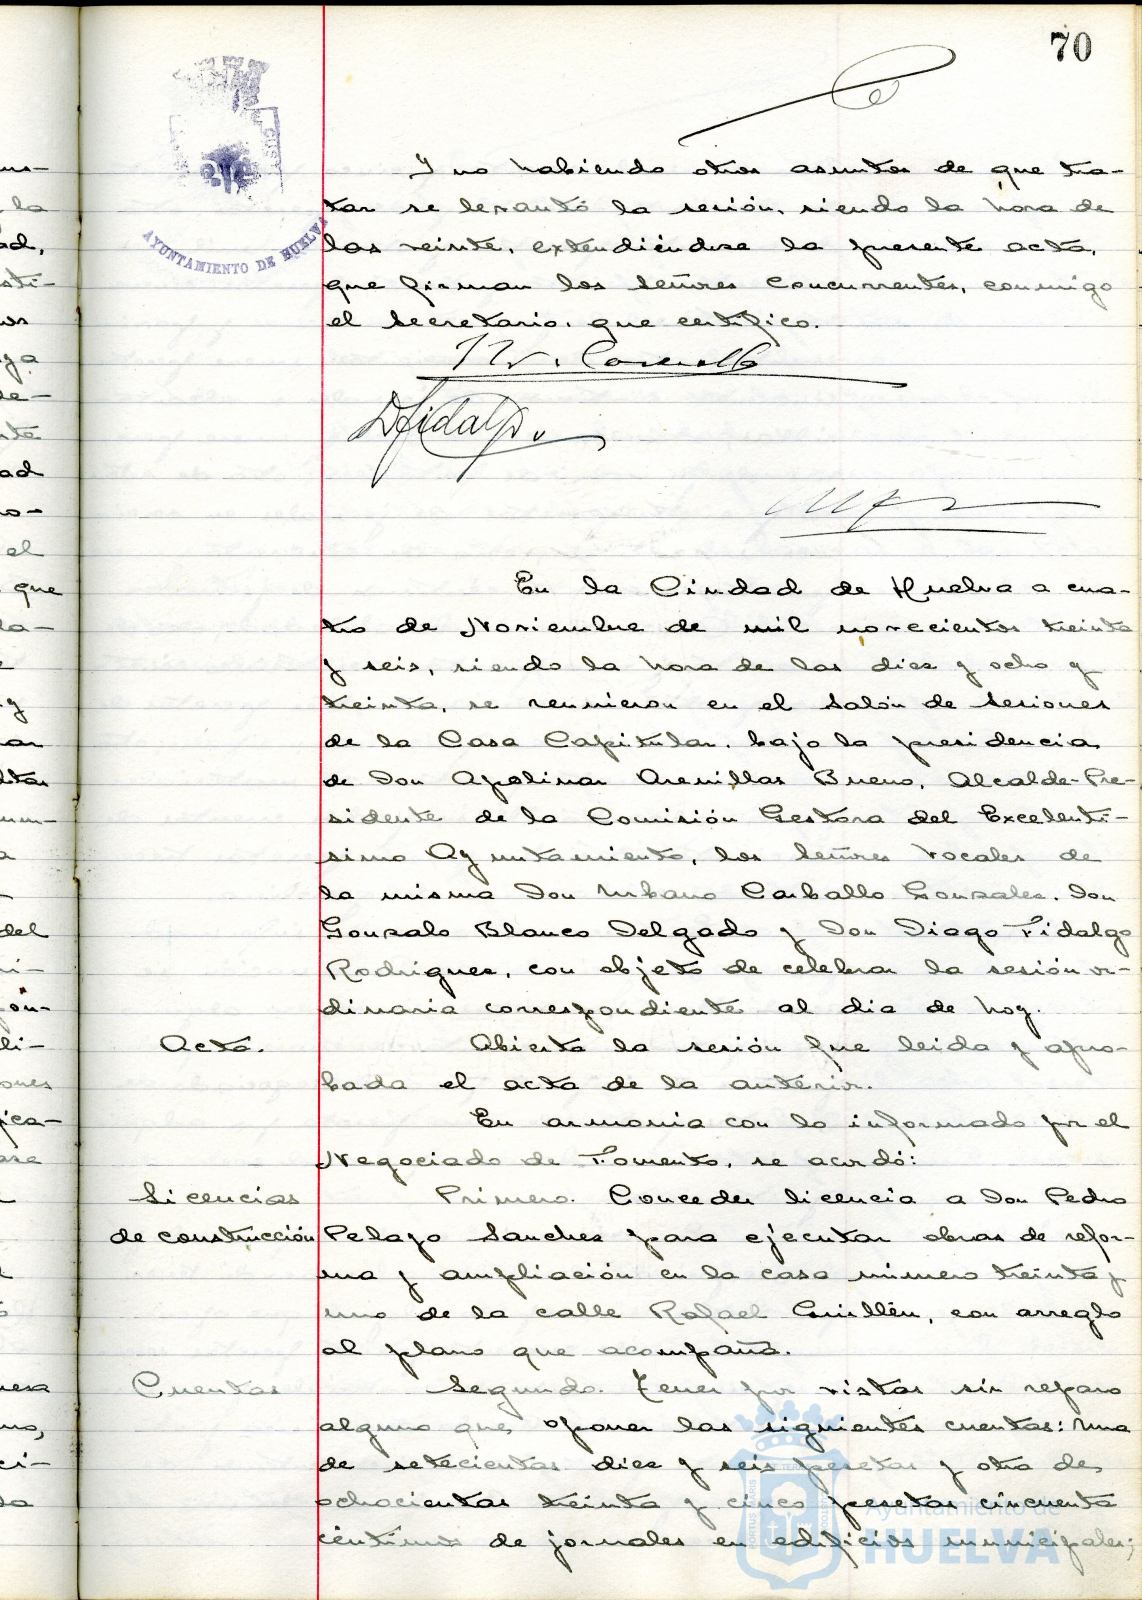 70
AYUNTAMIENTO DE HUELVA
Y no habiendo otros asuntos de que tra-
tar se levantó la sesión, siendo la hora de
las veinte, extendiéndose la presente acta,
que firman los Señores Concurrentes, conmigo
el Secretario, que certifico.
DFidalgo
En la Ciudad de Huelva a cua-
tro de Noviembre de mil novecientos treinta
y seis, siendo la hora de las diez y ocho y
treinta, se reunieron en el Salón de Sesiones
de la Casa Capitular, bajo la presidencia
de Don Apolinar Arenillas Bueno, Alcalde-Pre-
sidente de la Comisión Gestora del Excelentí-
simo Ayuntamiento, los Señores Vocales de
la misma Don Urbano Carballo Gonzales, Don
Gonzalo Blanco Delgado y Don Diego Fidalgo
Rodriguez, con objeto de celebrar la sesión or-
dinaria correspondiente al dia de hoy.
Acta.
Abierta la sesión fue leida y apro-
bada el acta de la anterior.
En armonia con lo informado por el
Negociado de Fomento, se acordó:
Licencias
de construcción
Primero. Conceder licencia a Don Pedro
Pelayo Sanchez para ejecutar obras de refor-
ma y ampliación en la casa número treinta y
uno de la calle Rafael Guillén, con arreglo
al plano que acompaña.
Cuentas
Segundo. Tener por vistas sin reparo
alguno que oponer las siguientes cuentas: Una
de setecientas diez y seis pesetas y otra de
ochocientas treinta y cinco pesetas cincuenta
céntimos de jornales en edificios municipales;
Ayuntamiento de
HUELVA